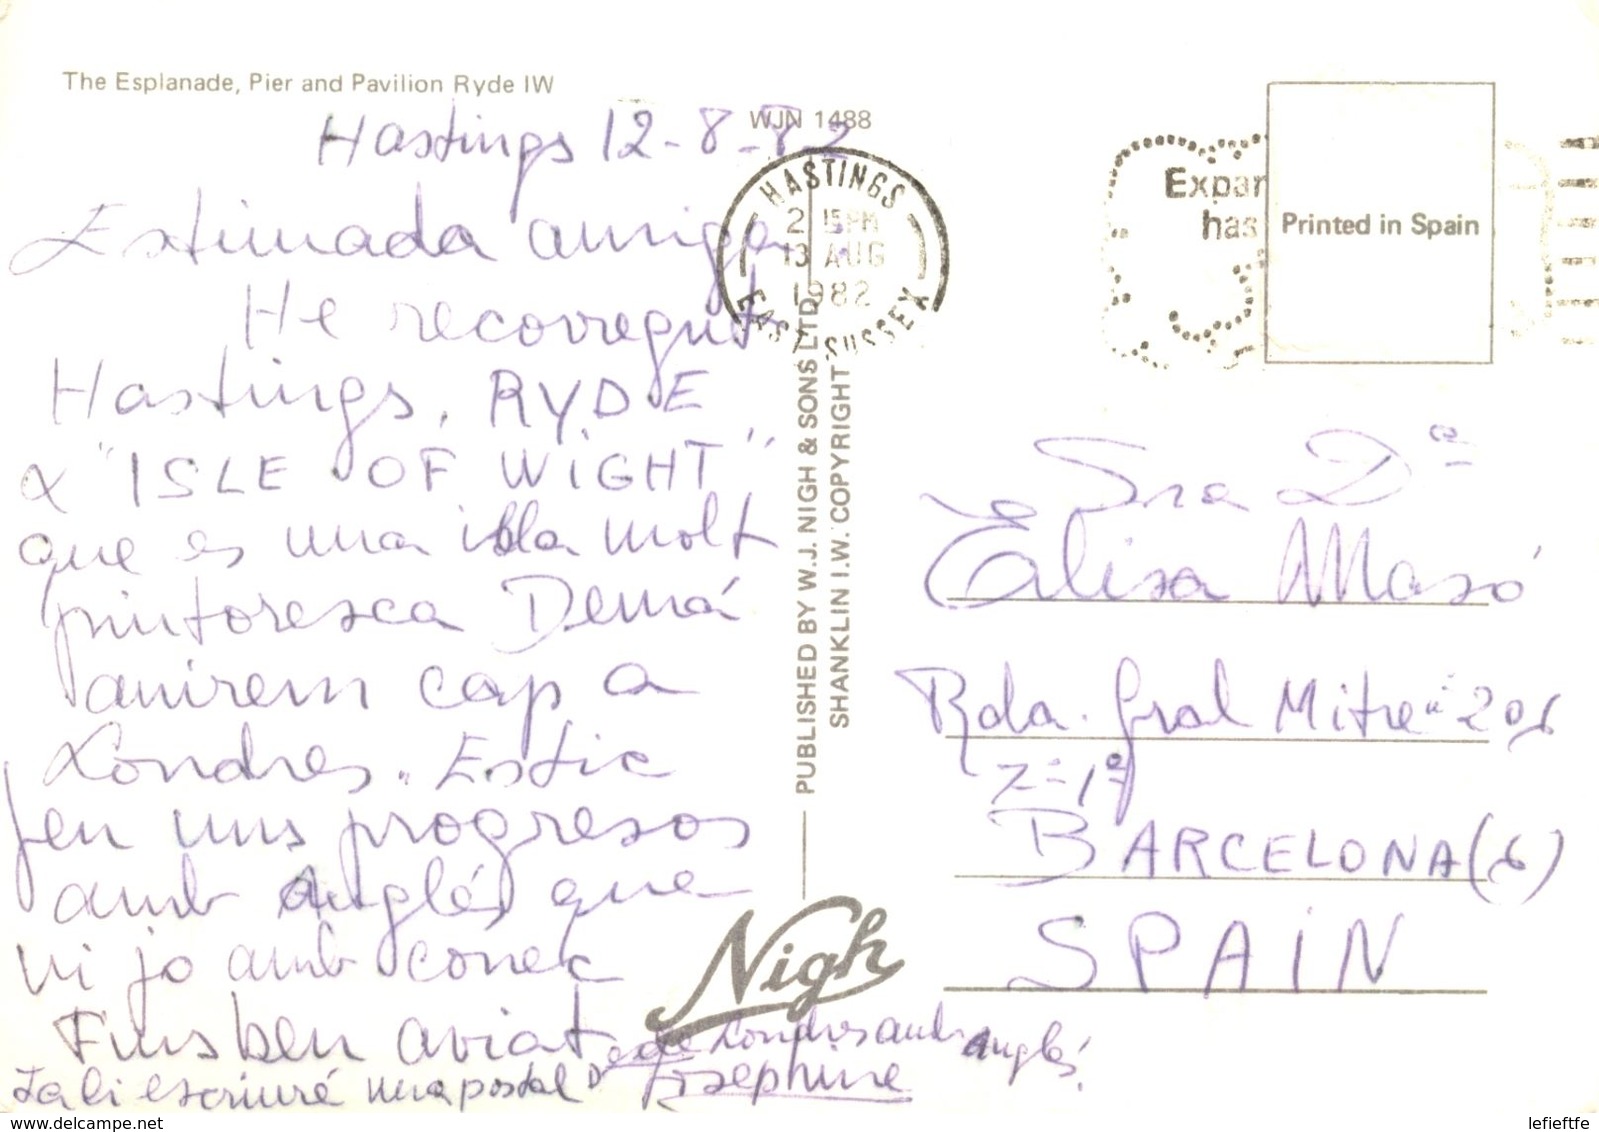 The Esplanade, Pier and Pavilion Ryde IW
WJN 1488
Hastings 12-8-82
Estimada amiga
He recorregut
Hastings, RYDE
"ISLE OF WIGHT"
que es una illa molt
pintoresca Demá
anirem cap a
Londres. Estic
fen uns progresos
amb Anglés que
ni jo amb conec
Fins ben aviat
Ja li escriuré una postal desde Londres amb anglés.
Josephine
HASTINGS
2 15 PM
13 AUG
1982
EAST SUSSEX
Expan
has
Printed in Spain
PUBLISHED BY W.J. NIGH & SONS LTD.
SHANKLIN I.W. COPYRIGHT
Nigh
Sra Dª
Elisa Masó
Rda. Gral Mitre 206
BARCELONA (6)
SPAIN
www.delcampe.net
lefieftfe